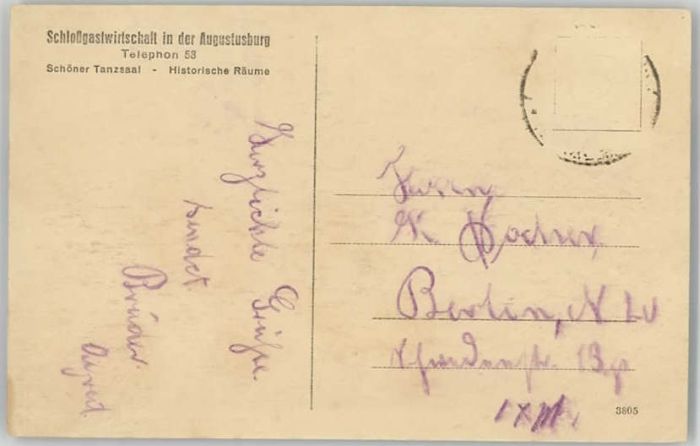 Schloßgastwirtschaft in der Augustusburg
Telephon 53
Schöner Tanzsaal - Historische Räume
Herzlichste Grüße
sendet
Bruder
Alfred
Herrn
Berlin, N
Schwedenstr.
3805